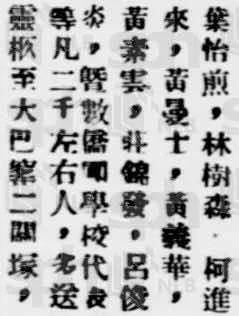 葉怡煎，林樹森，柯進
來，黃曼士，黃義華，
黃素雲，莊錦發，呂俊
炎，暨數僑團學校代表
等凡二千左右人，多送
靈柩至大巴窰二閘塚，